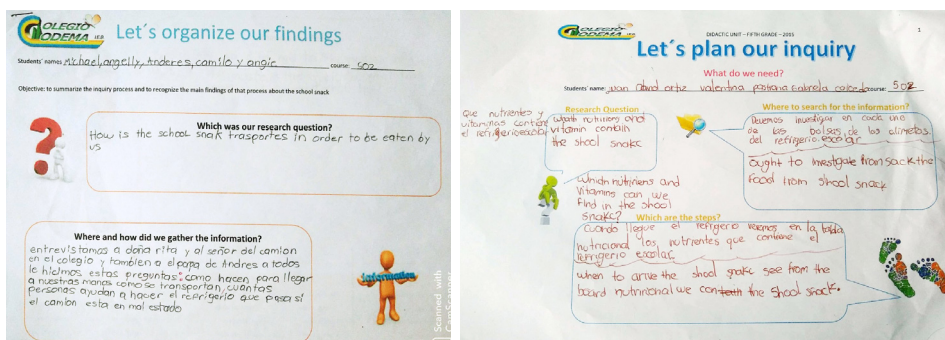 COLEGIO
NODEMA IED
Let´s organize our findings
Students´ names Michael, angelly, Anderes, camilo y angie course: 502
Objective: to summarize the inquiry process and to recognize the main findings of that process about the school snack
Which was our research question?
How is the school snak trasportes in order to be eaten by
us
Where and how did we gather the information?
entrevistamos a doña rita y al señor del camion
en el colegio y tambien a el papa de Andres a todos
le hicimos estas preguntas: como hacen para llegar
a nuestras manos como se transportan, cuantas
personas ayudan a hacer el refrigerio que pasa si
el camion esta en mal estado
information
Scanned with
CamScanner
COLEGIO
NODEMA IED
DIDACTIC UNIT – FIFTH GRADE – 2015
1
Let´s plan our inquiry
What do we need?
Students´ name: juan David ortiz valentina Gabriela course: 502
que nutrientes y
vitaminas contiene
el refrigerio escolar
Research Question
what nutriong and
vitamin contain
the shool snakc
Which nutriens and
Vitamins can we
find in the shool
snakc?
Where to search for the information?
Devemos investigar en cada una
de las bolsas de los alimetos
del refrigerio escolar
ought to investigate from sack the
food from shool snack
Which are the steps?
Cuando llegue el refrigerio veremos en la tabla
nutricional los nutrientes que contiene el
refrigerio escolar
when to arive the shool snakc see from the
board nutritional we con the shool snack.